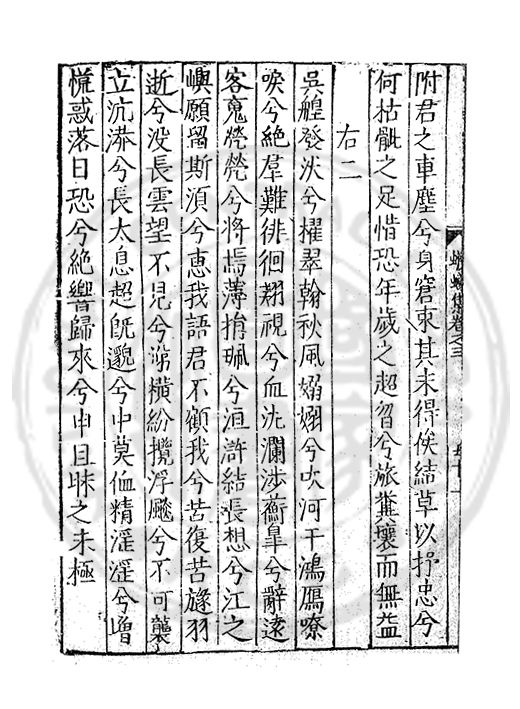 附君之車塵兮身窘束其未得俟結草以抒忠兮
何枯骴之足惜恐年歲之超曶兮旅糞壤而無益
右二
吳艎發汱兮櫂翠翰秋風嫋嫋兮吹河干鴻鴈嘹
唳兮絶羣難徘徊翱視兮血沈瀾涉蘅皐兮辭遠
客䰟煢煢兮將焉薄捐珮兮洹滸結長想兮江之
嶼願留斯須兮惠我語君不顧我兮苦復苦旌羽
逝兮没長雲望不見兮涕橫紛攬浮飈兮不可襲
立沆漭兮長太息超旣邈兮中莫侐精滛滛兮
慌惑落日恐兮絶響歸來兮中且昧之未極
蠛蠓集卷之三